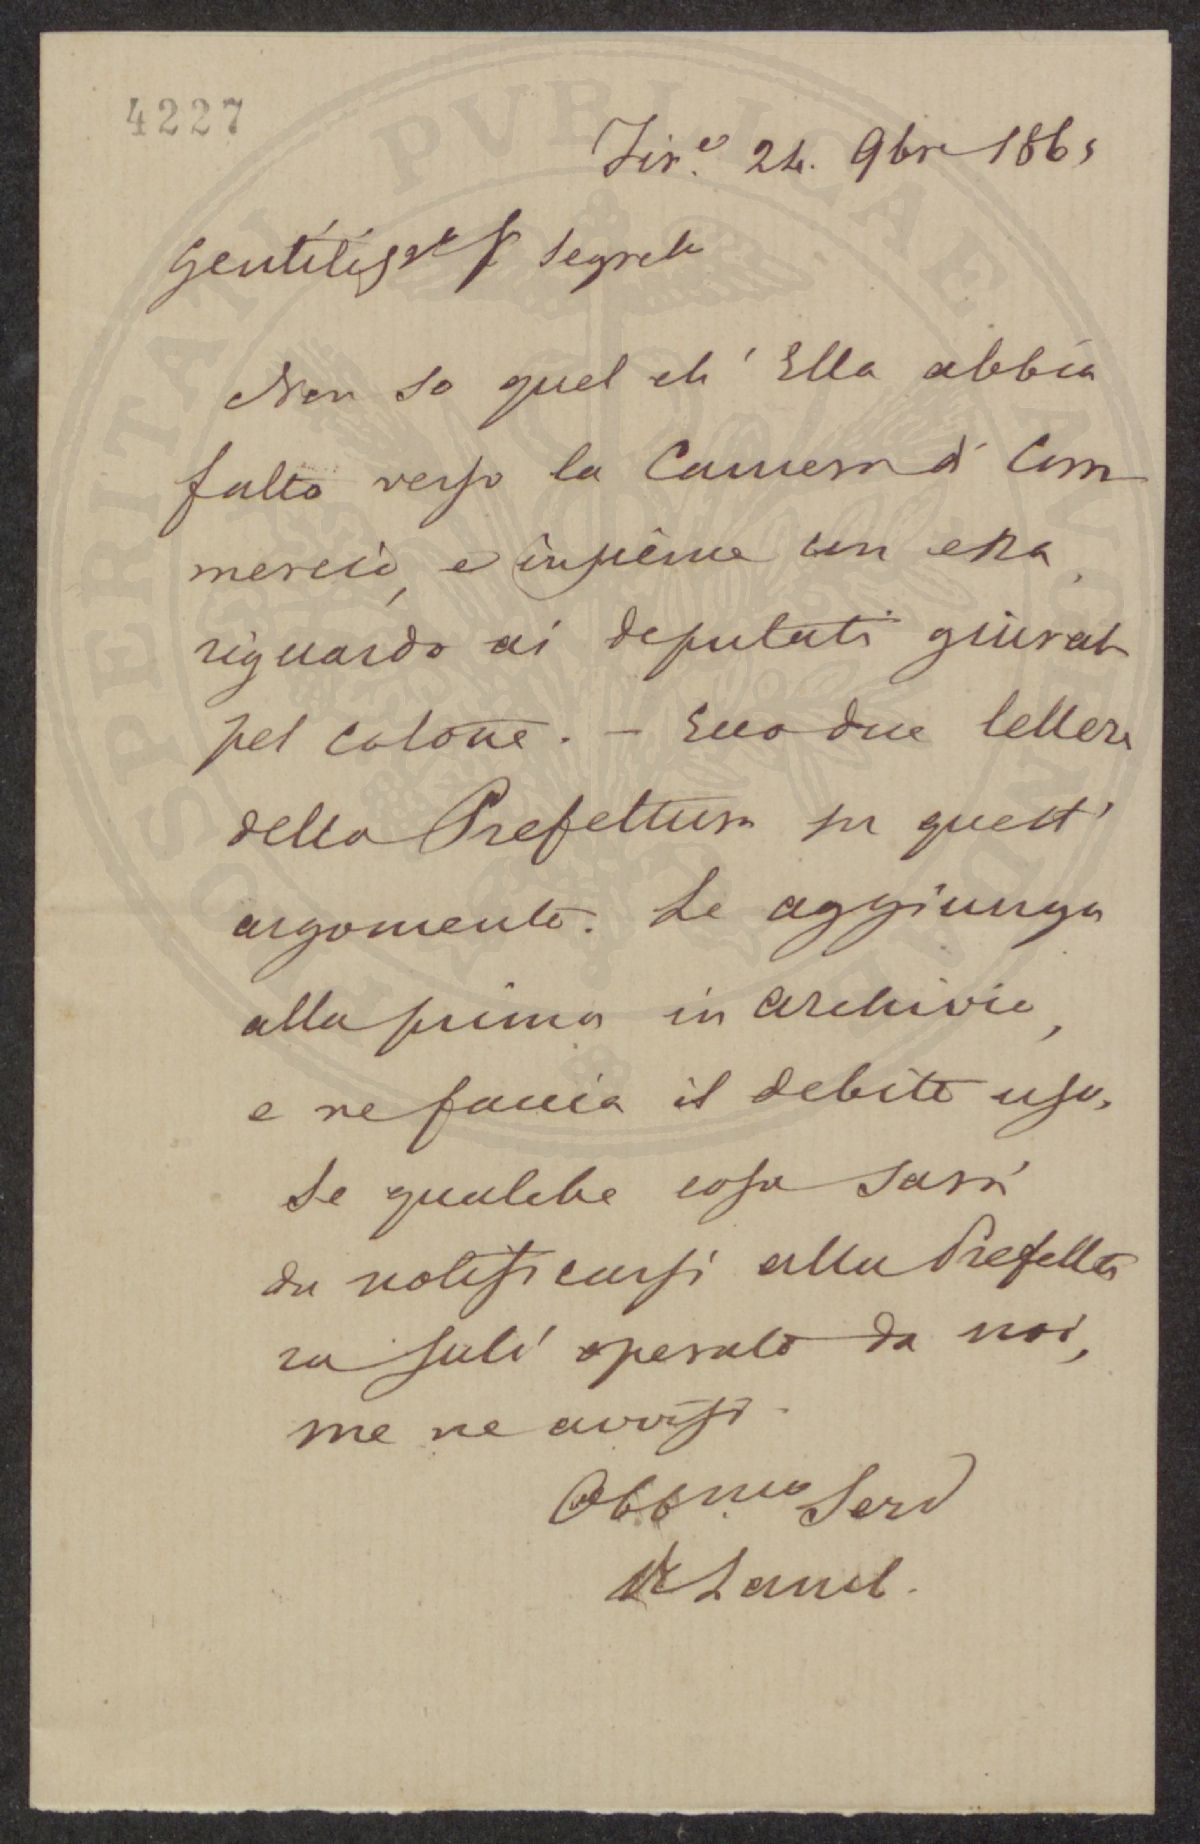 4227
Fir.e 24. 9bre 1865
Gentiliss.o S.r Segret.
Non so quel ch' Ella abbia
fatto verso la Camera di Com
mercio, e insieme con essa
riguardo ai deputati giurat
pel cotone. - Ecco due lettere
della Prefettura su quest'
argomento. Le aggiunga
alla prima in archivio,
e ne faccia il debito uso.
Se qualche cosa sarà
da notificarsi alla Prefettu
ra sull' operato da noi,
me ne avvisi.
Obb.mo Serv
PROSPERITATI PVBLICAE AVGENDAE